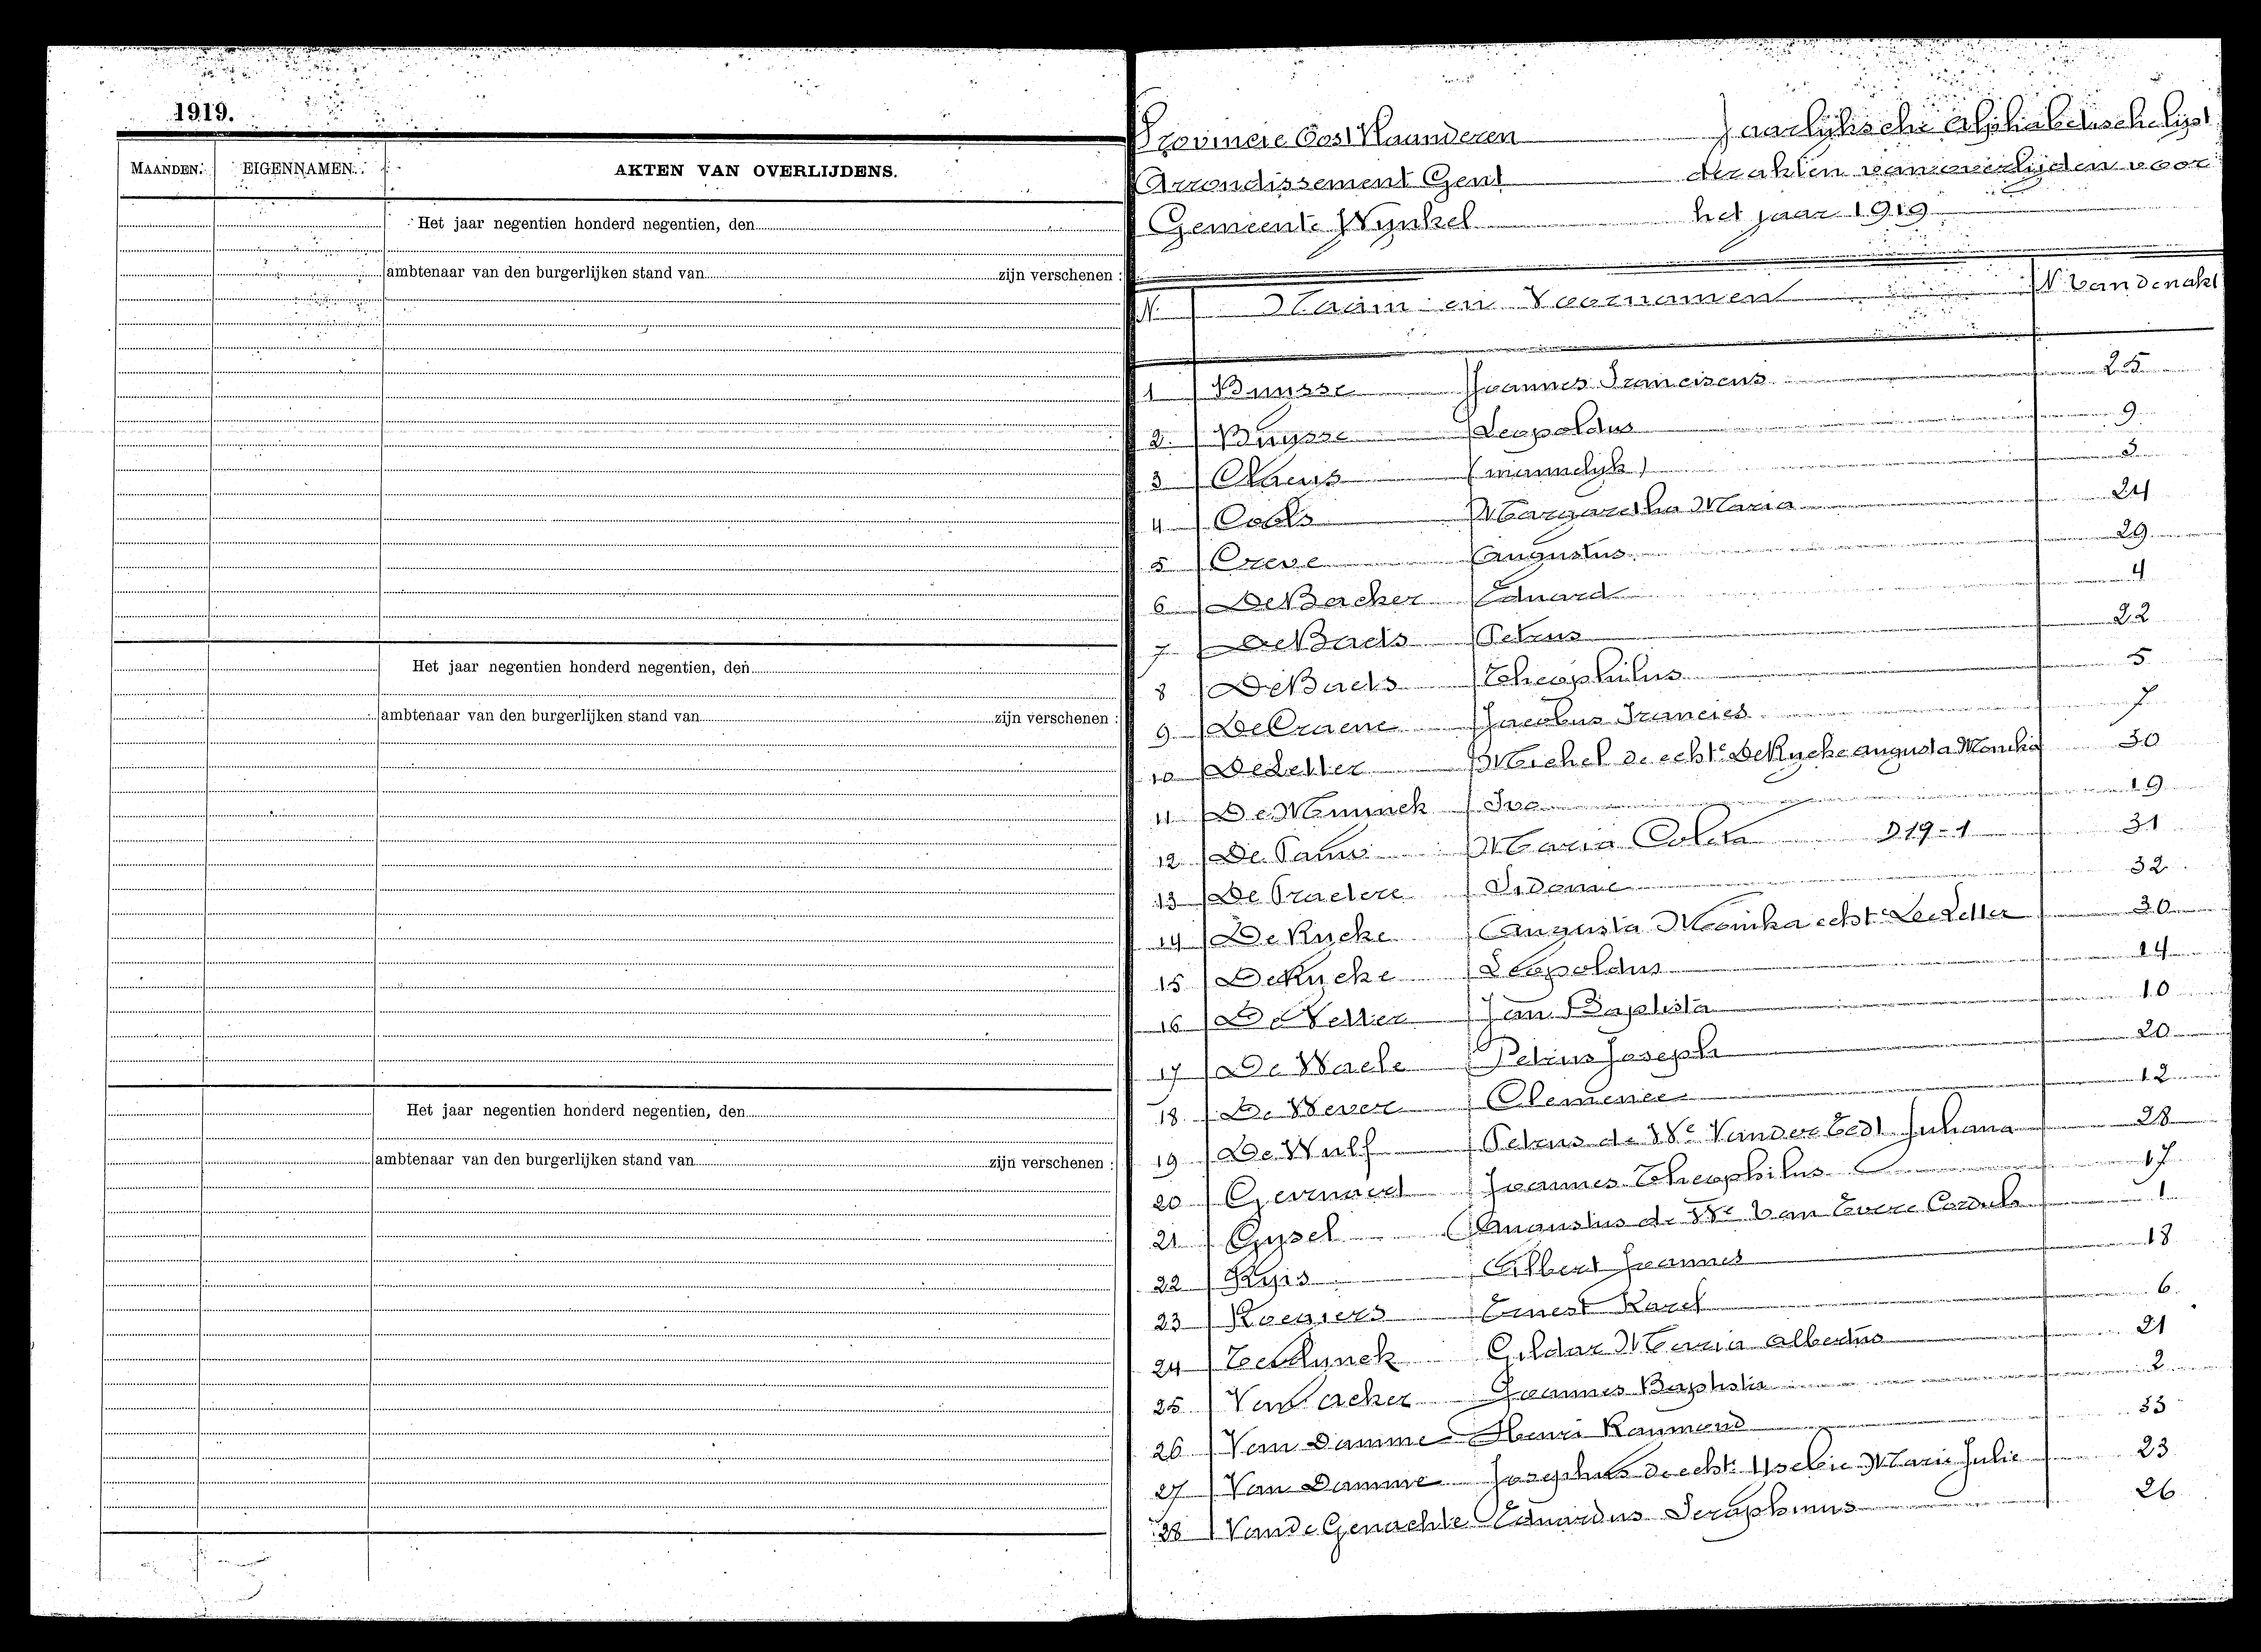 1919.
MAANDEN. EIGENNAMEN. AKTEN VAN OVERLIJDENS.
Het jaar negentien honderd negentien, den
ambtenaar van den burgerlijken stand van zijn verschenen :
Het jaar negentien honderd negentien, den
ambtenaar van den burgerlijken stand van zijn verschenen :
Het jaar negentien honderd negentien, den
ambtenaar van den burgerlijken stand van zijn verschenen :
Provincie Oost Vlaanderen Jaarlijksche Alphabetischelijst
Arrondissement Gent der akten van overlijden voor
Gemeente Wynkel het jaar 1919
N. Naam en Voornamen N. van den akt
1 Buysse Joannes Franciscus 25
2 Buysse Leopoldus 9
3 Claeys (mannelyk) 3
4 Cools Margaretha Maria 24
5 Creve Augustus 29
6 De Backer Eduard 4
7 De Baets Petrus 22
8 De Baets Theophilus 5
9 De Craene Jacobus Francies 7
10 De Letter Michel d. echte De Rycke Augusta Monika 30
11 De Muynck Ivo 19
12 De Pauw Maria Coleta D 19-1 31
13 De Praetere Sidonie 32
14 De Rycke Augusta Monika echte De Letter 30
15 De Rycke Leopoldus 14
16 De Vetter Jan Baptista 10
17 De Waele Petrus Joseph 20
18 De Wever Clemence 12
19 De Wulf Petrus d. We Vander Juliana 28
20 Gevaert Joannes Theophilus 17
21 Gysel Augustus d. We Van Cordula 1
22 Ryis Albert Joannes 18
23 Roegiers Ernest Karel 6
24 Gildar Maria Albertus 21
25 Van Joannes Baptista 2
26 Van Damme Henri Raymond 33
27 Van Damme Josephus d. echte Marie Julie 23
28 Vande Genachte Eduardus Seraphinus 26